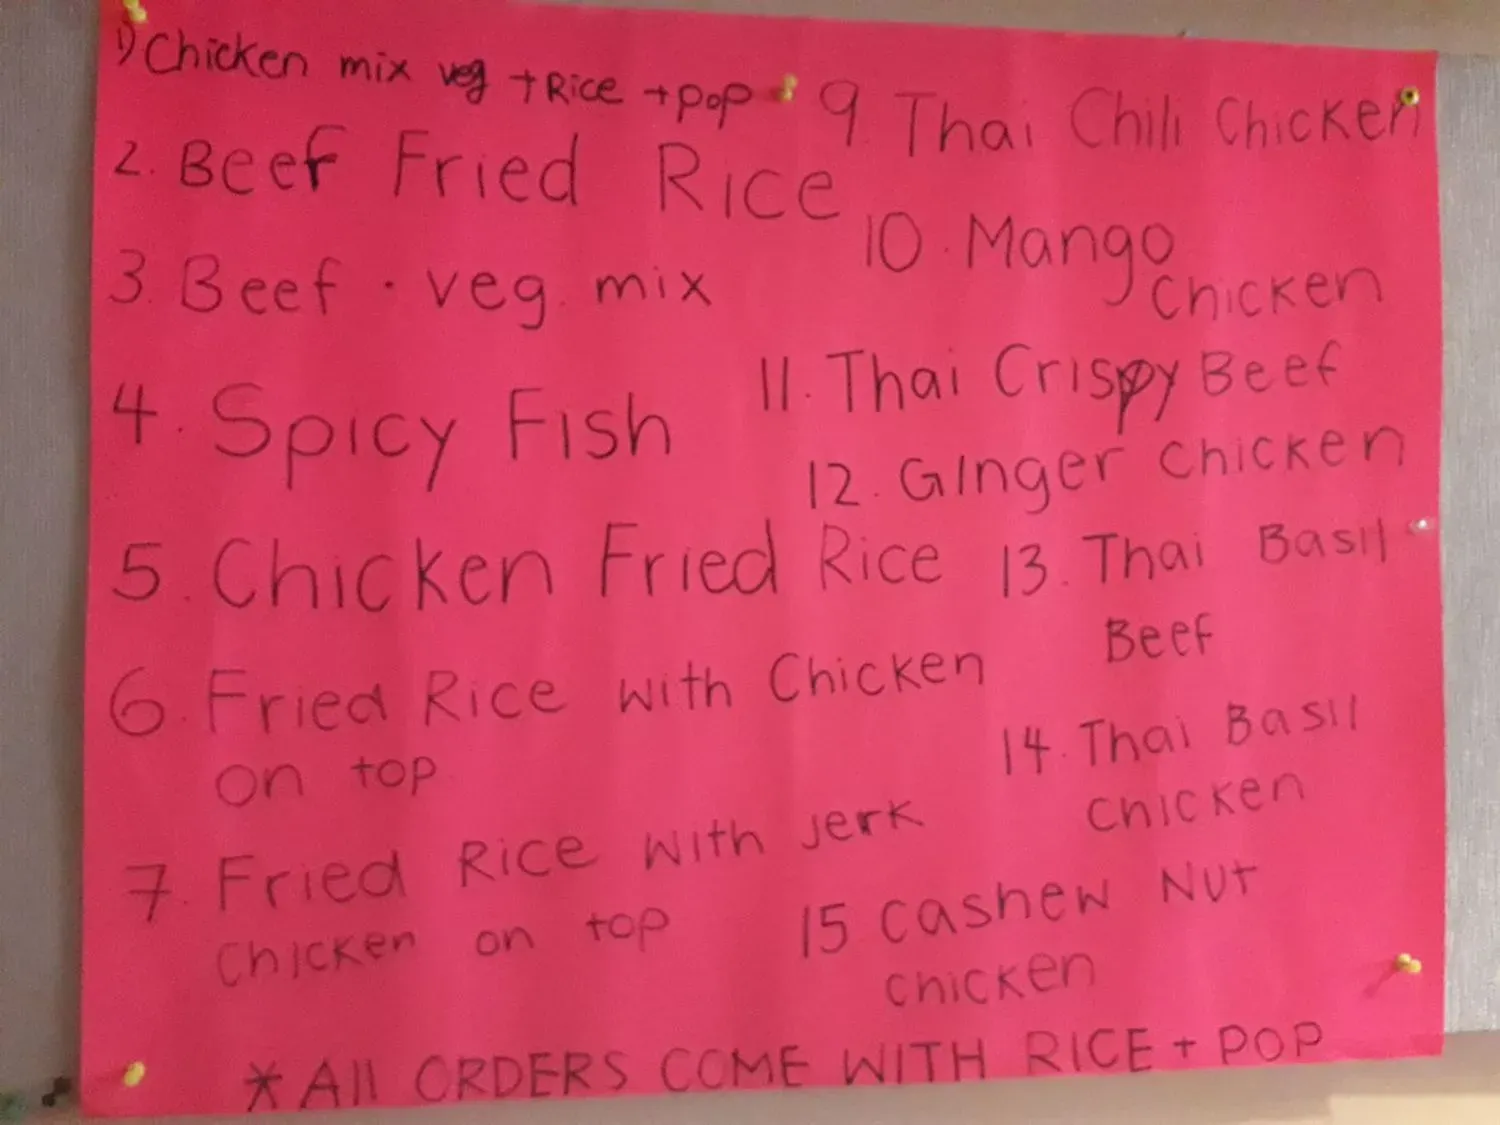 1) Chicken mix veg + Rice + pop
2. Beef Fried Rice
3. Beef · veg. mix
4. Spicy Fish
5. Chicken Fried Rice
6. Fried Rice with Chicken
on top
7. Fried Rice with Jerk
Chicken on top
9. Thai Chili Chicken
10. Mango
Chicken
11. Thai Crispy Beef
12. Ginger Chicken
13. Thai Basil
Beef
14. Thai Basil
Chicken
15 Cashew Nut
Chicken
* All ORDERS COME WITH RICE + POP